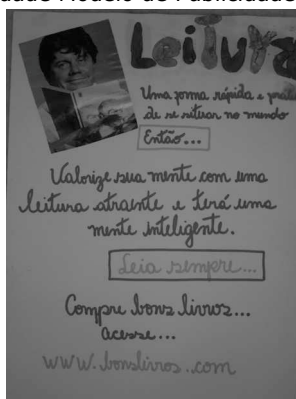 Modelo de Publicidade
Leitura
Uma forma rápida e
de se situar no mundo
Então...
Valorize sua mente com uma
leitura atraente e terá uma
mente inteligente.
Leia sempre...
Compre bons livros...
acesse...
www.bonslivros.com